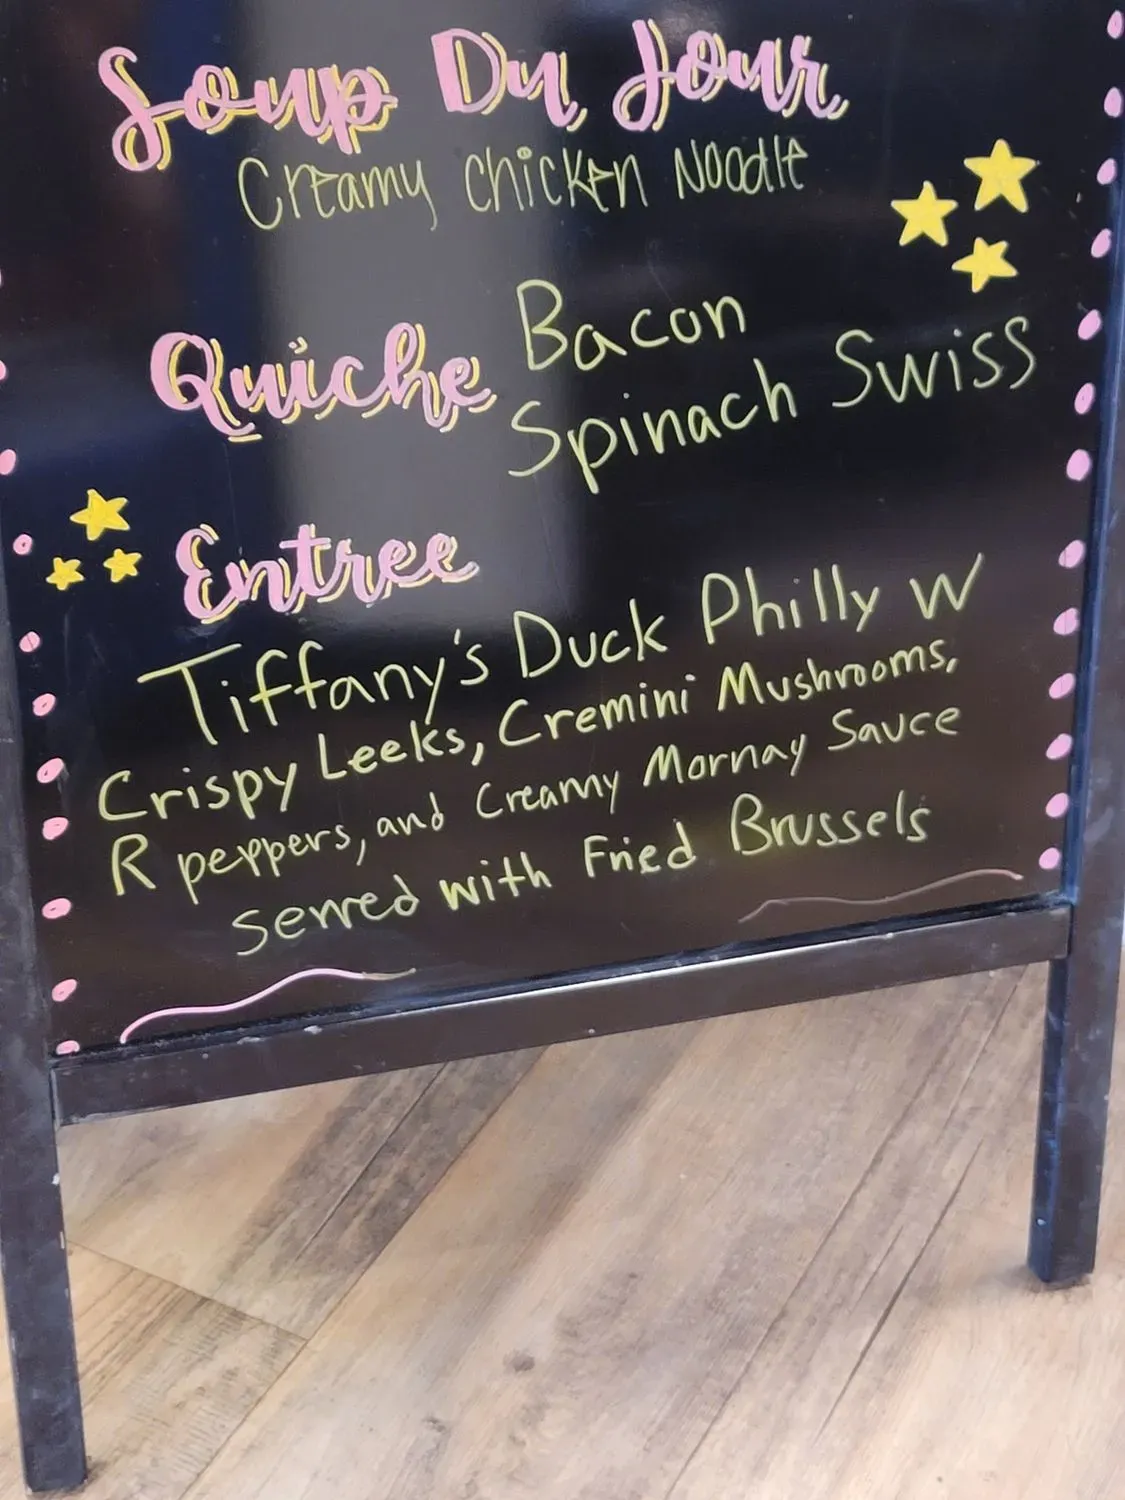 Soup Du Jour
Creamy Chicken Noodle
Quiche Bacon
Spinach Swiss
Entree
Tiffany's Duck Philly W
Crispy Leeks, Cremini Mushrooms,
R peppers, and Creamy Mornay Sauce
served with Fried Brussels